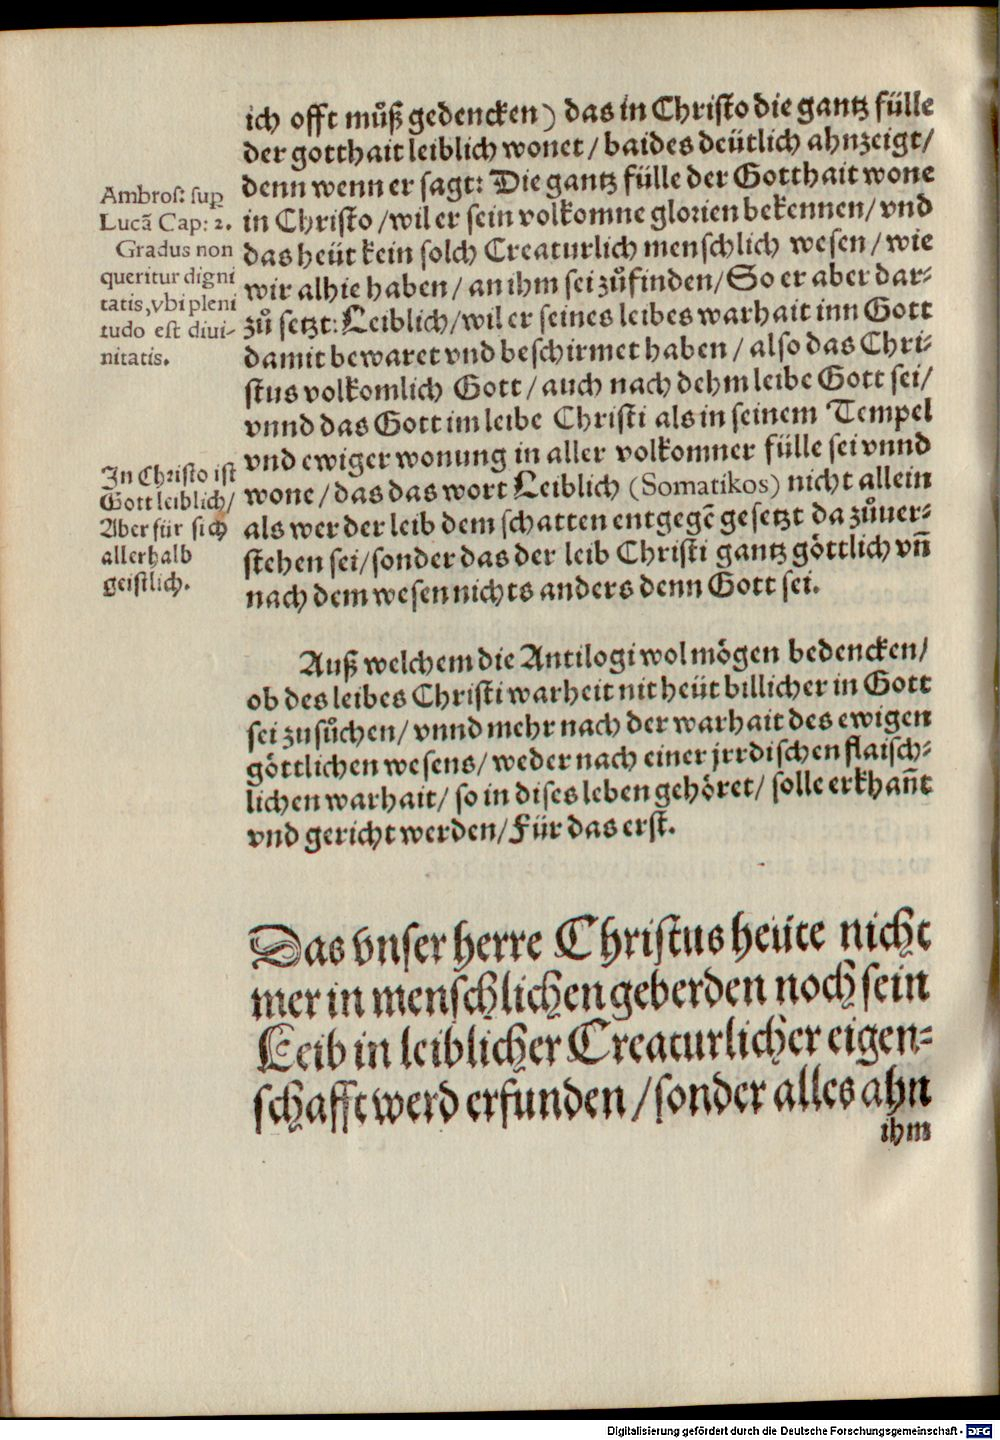 ich offt můß gedencken) das in Christo die gantz fülle
der gotthait leiblich wonet / baides deütlich ahnzeigt/
denn wenn er sagt: Die gantz fülle der Gotthait wone
in Christo /wil er sein volkomne glorien bekennen/ vnd
das heüt kein solch Creaturlich menschlich wesen/ wie
wir alhie haben/ an ihm sei zůfinden/ So er aber dar-
zů setzt: Leiblich/wil er seines leibes warhait inn Gott
damit bewaret vnd beschirmet haben / also das Chri-
stus volkomlich Gott/ auch nach dehm leibe Gott sei/
vnnd das Gott im leibe Christi als in seinem Tempel
vnd ewiger wonung in aller volkomner fülle sei vnnd
wone/ das das wort Leiblich (Somatikos) nicht allein
als wer der leib dem schatten entgegē gesetzt da zůuer-
stehen sei/sonder das der leib Christi gantz göttlich vn̄
nach dem wesen nichts anders denn Gott sei.
Ambros: sup
Lucā Cap: 2.
Gradus non
queritur digni
tatis, vbi pleni
tudo est diui-
nitatis.
In Christo ist
Gott leiblich/
Aber für sich
allerhalb
geistlich.
Auß welchem die Antilogi wol mögen bedencken/
ob des leibes Christi warheit nit heüt billicher in Gott
sei zusůchen/ vnnd mehr nach der warhait des ewigen
göttlichen wesens/ weder nach einer jrrdischen flaisch-
lichen warhait/ so in dises leben gehöret/ solle erkhan̄t
vnd gericht werden/ Für das erst.
Das vnser herre Christus heüte nicht
mer in menschlichen geberden noch sein
Leib in leiblicher Creaturlicher eigen-
schafft werd erfunden /sonder alles ahn
ihm
Digitalisierung gefördert durch die Deutsche Forschungsgemeinschaft - DFG